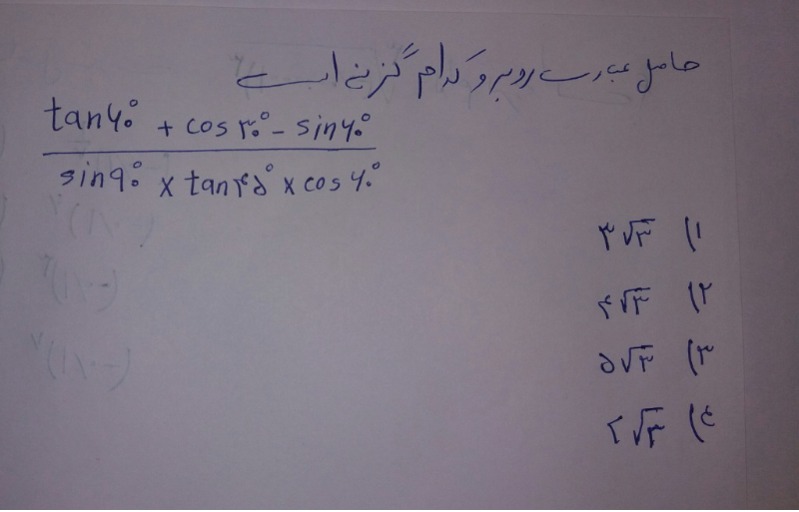 حاصل عبارت روبرو کدام گزینه است
tan۶۰° + cos۳۰° - sin۶۰°
sin۹۰° × tan۴۵° × cos۶۰°
۱) ۳√۳
۲) ۴√۳
۳) ۵√۳
۴) ۲√۳